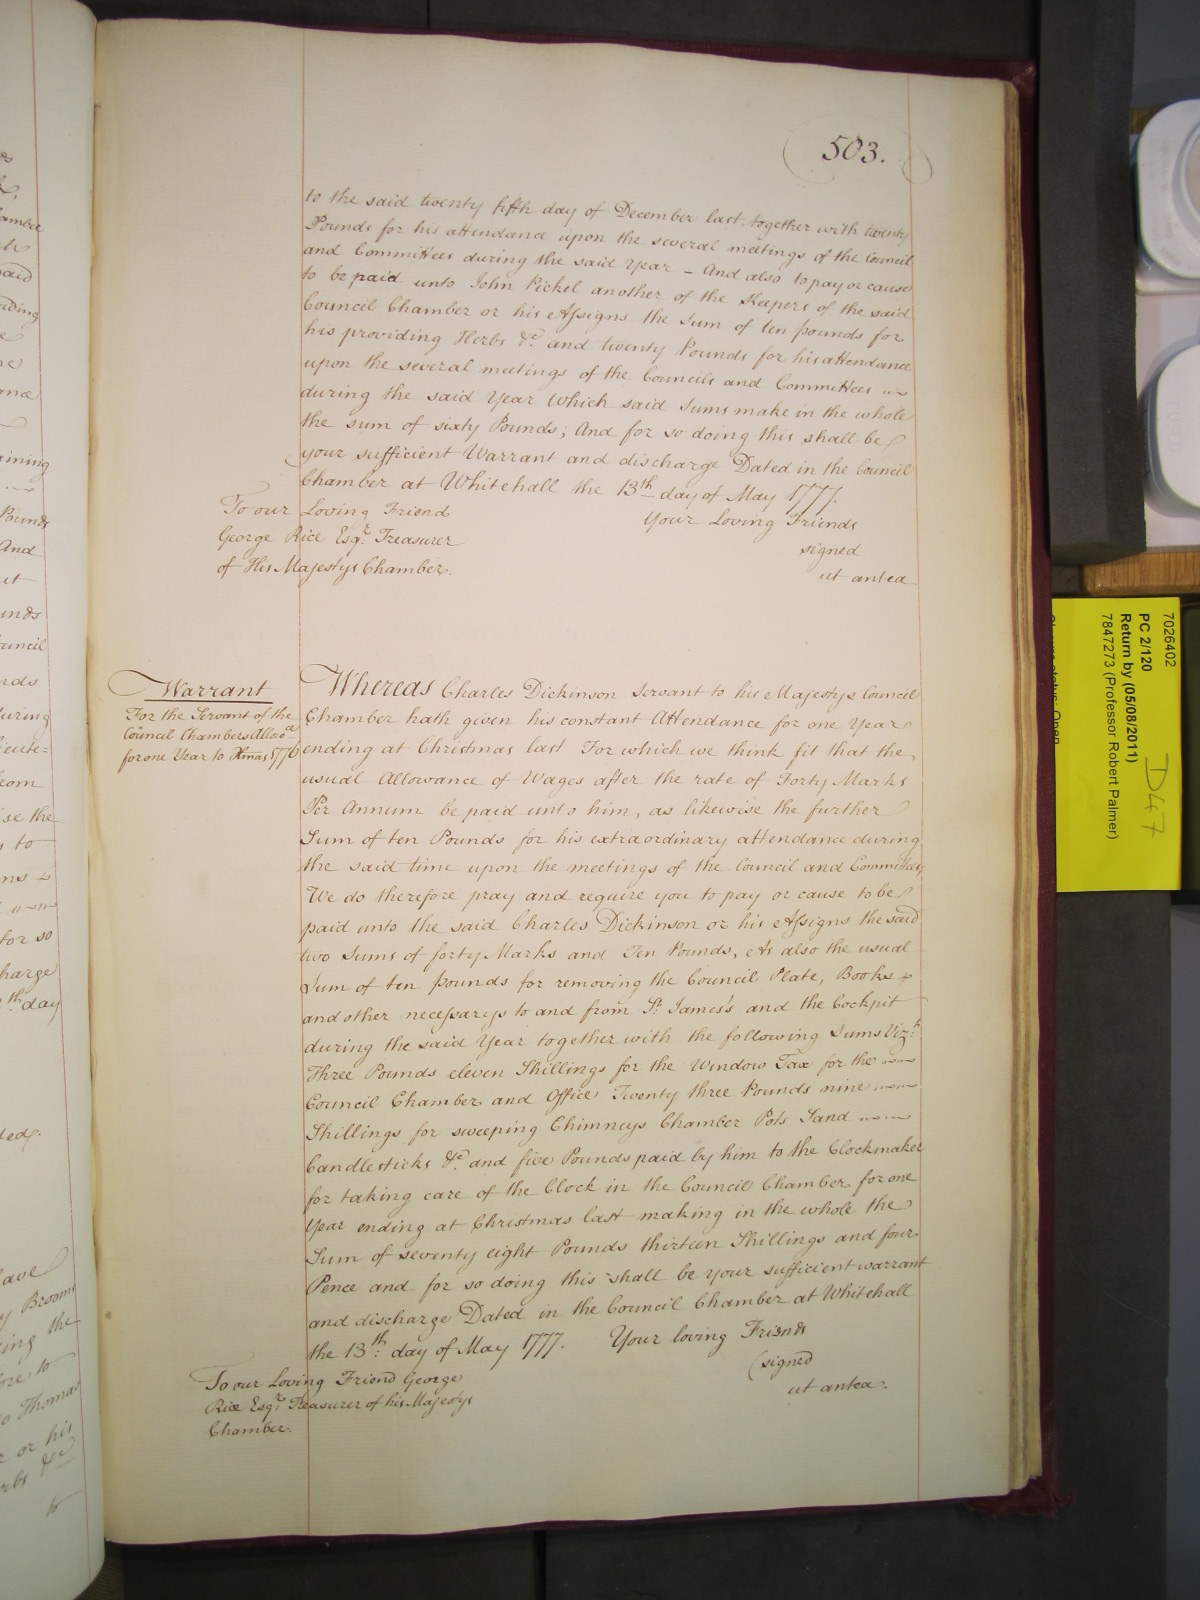 503.
to the said twenty fifth day of December last, together with twenty
Pounds for his attendance upon the several meetings of the Council
and Committees during the said Year – And also to pay or cause
to be paid unto John Pickel another of the Keepers of the said
Council Chamber or his Assigns the Sum of ten pounds for
his providing Herbs &c. and twenty Pounds for his attendance
upon the several meetings of the Councils and Committees
during the said Year Which said Sums make in the whole
the sum of sixty Pounds; And for so doing this shall be
your sufficient Warrant and discharge Dated in the Council
Chamber at Whitehall the 13th day of May 1777.
To our Loving Friend
George Rice Esqr. Treasurer
of His Majestys Chamber.
Your Loving Friends
signed
ut antea
Warrant
For the Servant of the
Council Chambers Allwce
for one Year to Xmas 1776
Whereas Charles Dickinson Servant to his Majestys Council
Chamber hath given his constant Attendance for one Year
ending at Christmas last For which we think fit that the
usual Allowance of Wages after the rate of Forty Marks
Per Annum be paid unto him, as likewise the further
Sum of ten Pounds for his extraordinary attendance during
the said time upon the meetings of the Council and Committees,
We do therefore pray and require you to pay or cause to be
paid unto the said Charles Dickinson or his Assigns the said
two Sums of forty Marks and Ten Pounds, As also the usual
Sum of ten pounds for removing the Council Plate, Books
and other necessarys to and from St. James's and the Cockpit
during the said Year together with the following Sums Vizt.
Three Pounds eleven Shillings for the Window Tax for the
Council Chamber and Office Twenty three Pounds nine
Shillings for sweeping Chimneys Chamber Pots Sand
Candlesticks &c. and five Pounds paid by him to the Clockmaker
for taking care of the Clock in the Council Chamber for one
Year ending at Christmas last making in the whole the
Sum of seventy eight Pounds thirteen Shillings and four
Pence and for so doing this shall be your sufficient warrant
and discharge Dated in the Council Chamber at Whitehall
the 13th. day of May 1777. Your loving Friends
(signed
ut antea.
To our Loving Friend George
Rice Esqr. Treasurer of his Majestys
Chamber.
7026402
PC 2/120
Return by (05/08/2011)
7847273 (Professor Robert Palmer)
D47